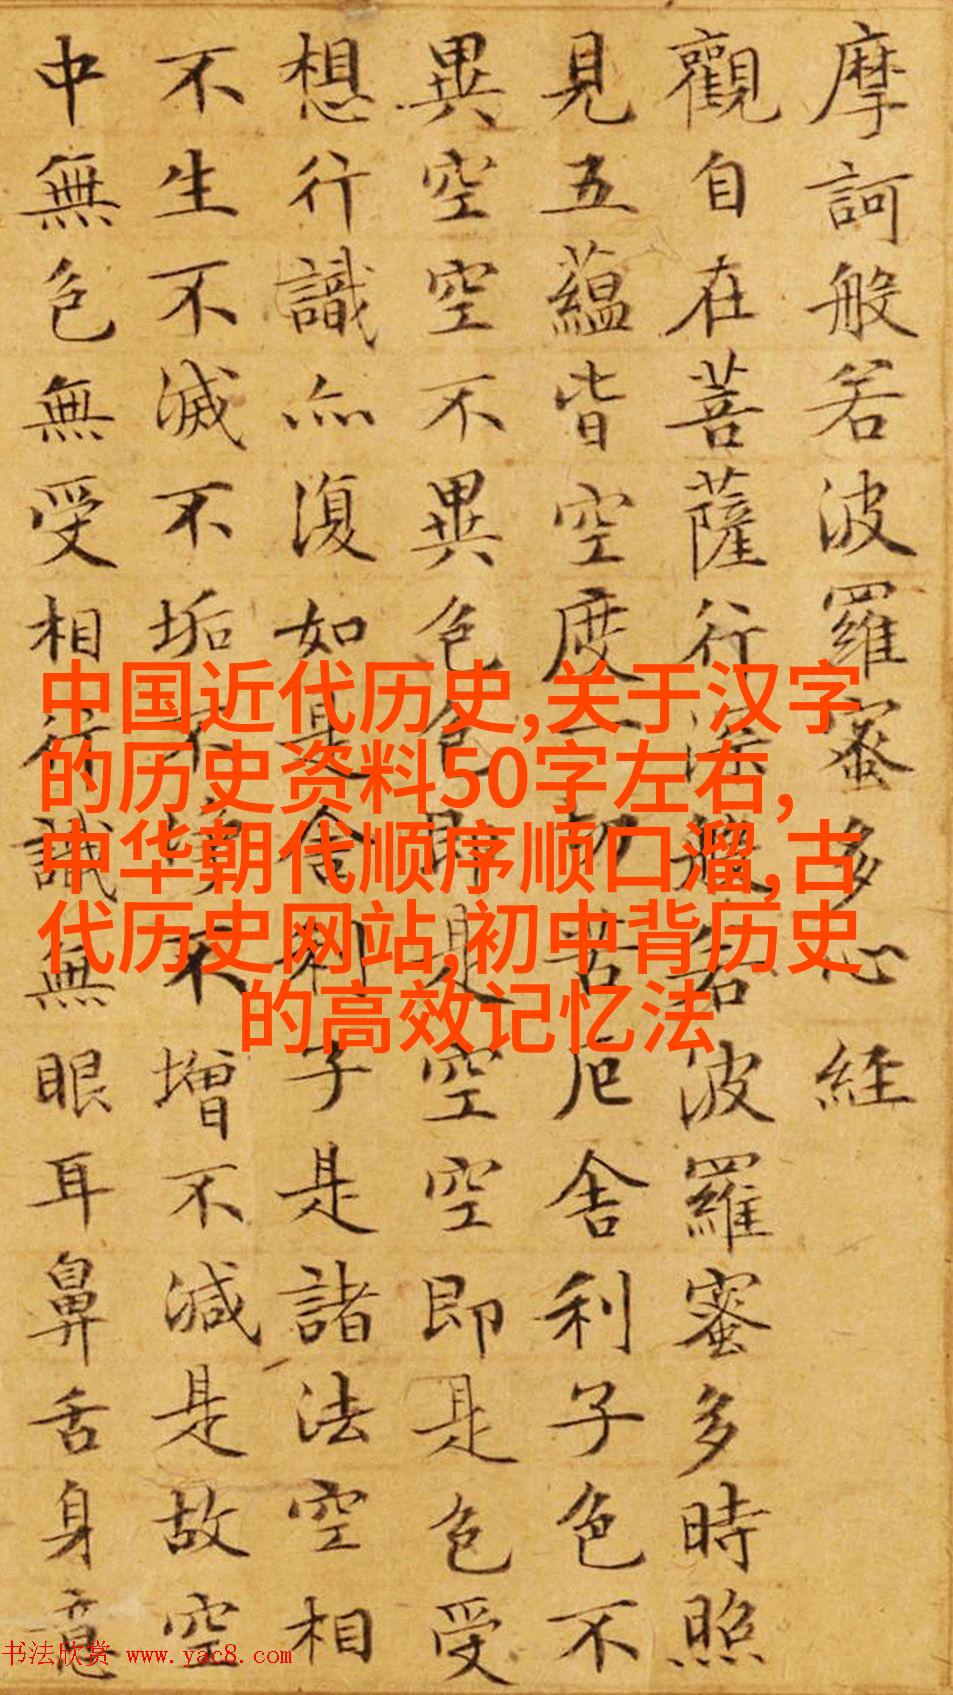 摩訶般若波羅蜜多心經
觀自在菩薩行深般若波羅蜜多時照
見五蘊皆空度一切苦厄舍利子色不
異空空不異色色即是空空即是色受
想行識亦復如是舍利子是諸法空相
不生不滅不垢不淨不增不減是故空
中無色無受想行識無眼耳鼻舌身意
中国近代历史,关于汉字
的历史资料50字左右,
中华朝代顺序顺口溜,古
代历史网站,初中背历史
的高效记忆法
书法欣赏 www.yac8.com